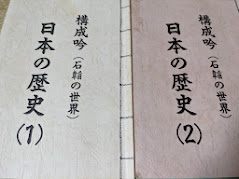 構成吟
(石韜の世界)
日本の歴史
(1)
構成吟
(石韜の世界)
日本の歴史
(2)